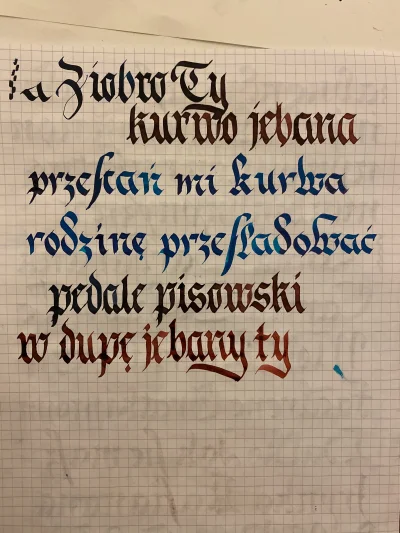 a Ziobro Ty
kurwo jebana
przestań mi kurwa
rodzinę prześladować
pedale pisowski
w dupę jebany ty